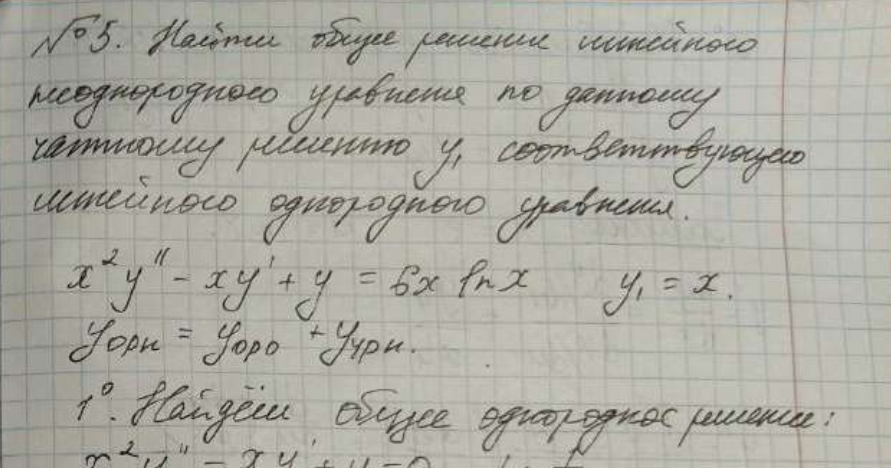 №5. Найти общее решение линейного
неоднородного уравнения по данному
частному решению y₁ соответствующего
линейного однородного уравнения.
x²y'' - xy' + y = 6x ln x y₁ = x.
yорн = yоро + yчрн.
1⁰. Найдём общее однородное решение:
x²y'' - xy' + y = 0